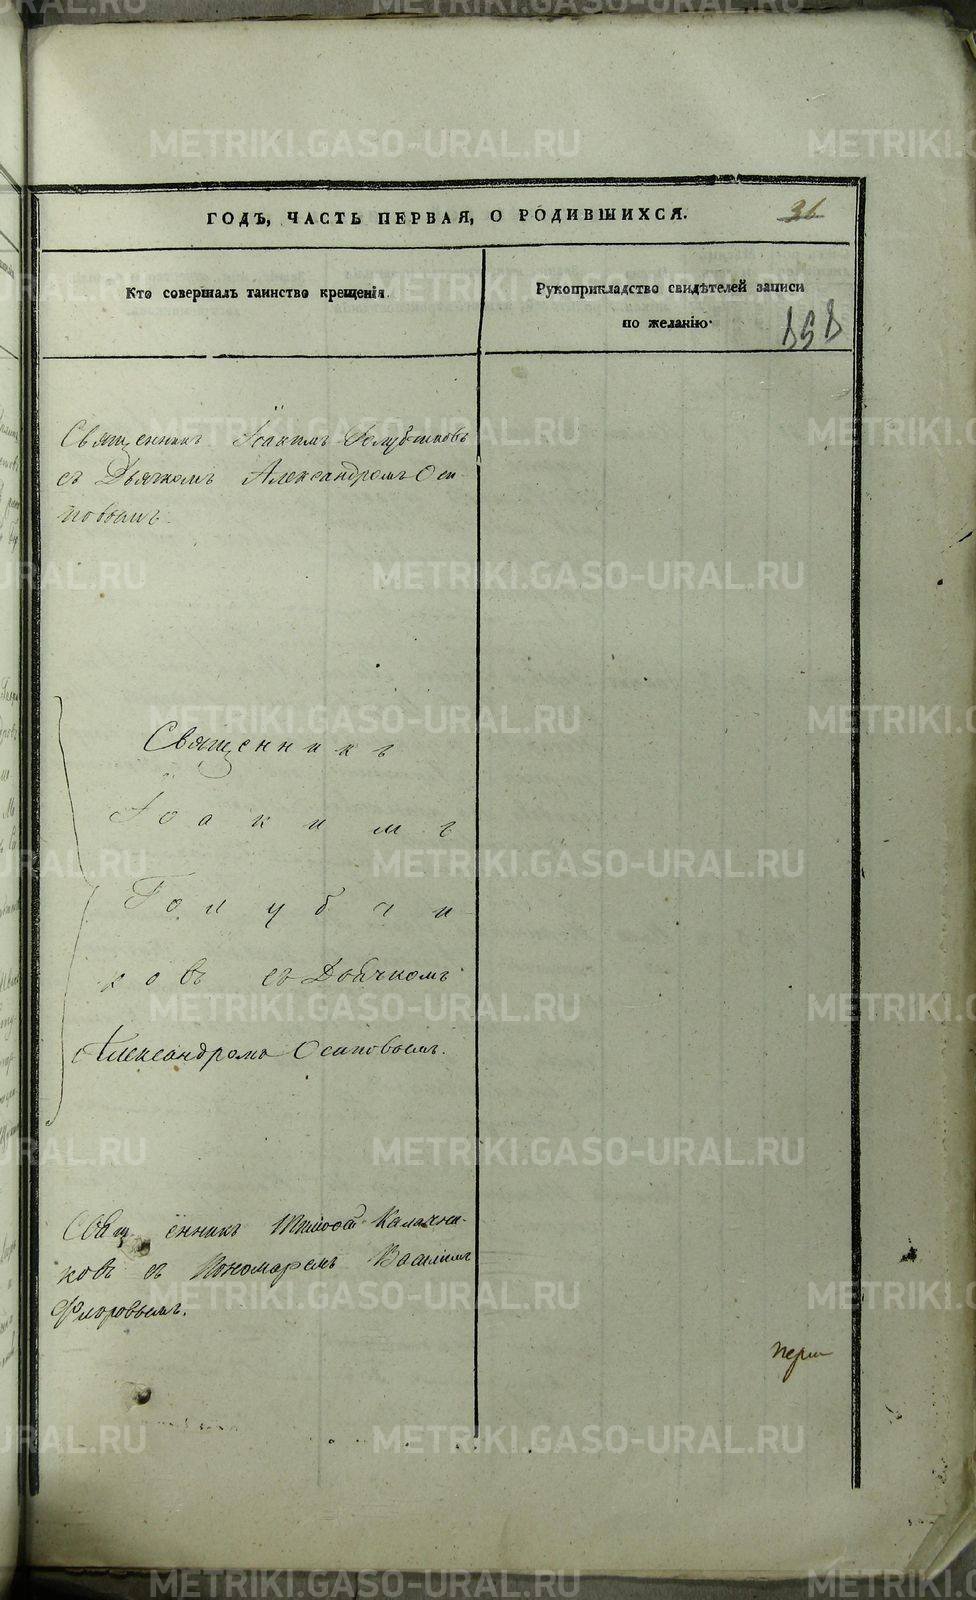 ГОДЪ, ЧАСТЬ ПЕРВАЯ, О РОДИВШИХСЯ.
36
Кто совершалъ таинство крещенія.
Рукоприкладство свидѣтелей записи
по желанію.
Священникъ Іоакимъ Голубчиковъ
съ Дьячкомъ Александромъ Оси-
повымъ.
Священникъ
Іоакимъ
Голубчи
ковъ съ Дьячкомъ
Александромъ Осиповымъ.
Священникъ Калачни-
ковъ съ Пономаремъ Василіемъ
Флоровымъ.
METRIKI.GASO-URAL.RU